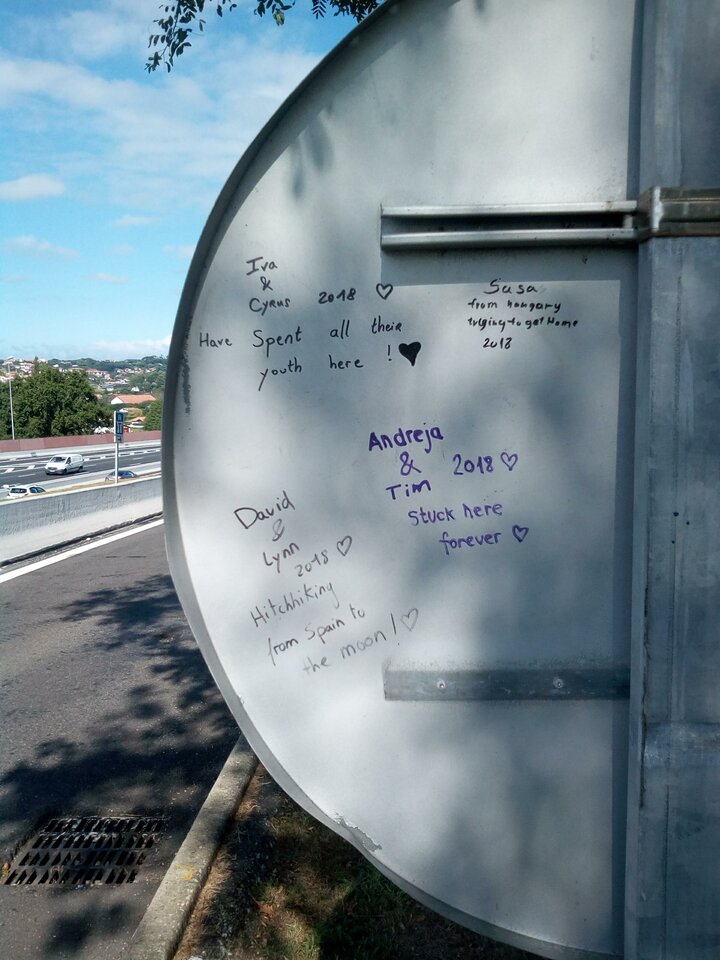 Iva
&
Cyrus 2018 ♡
Have Spent all their
youth here ! ♥
Susa
from hongary
to get Home
2018
Andreja
& 2018 ♡
Tim
Stuck here
forever ♡
David
&
Lynn
2018 ♡
Hitchhiking
from Spain to
the moon! ♡